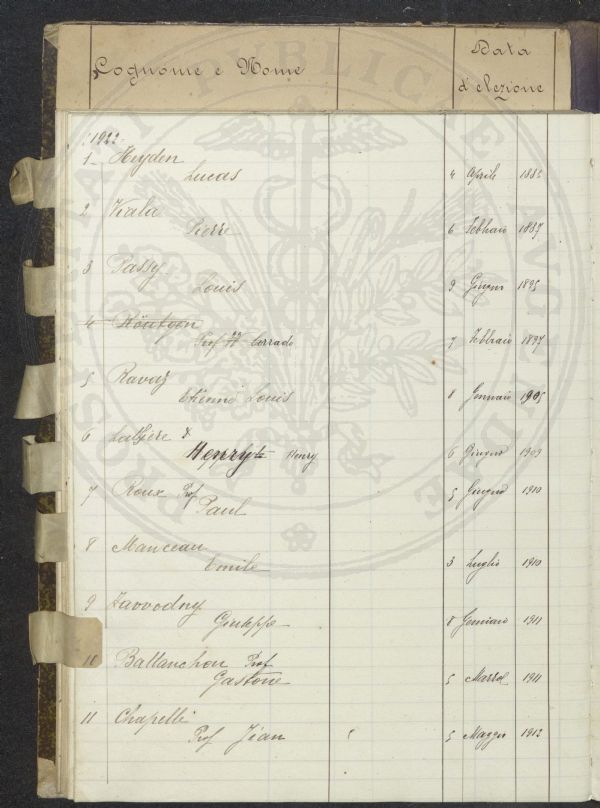 Cognome e Nome
Data
d'elezione
1922
1 Heyden
Lucas 4 Aprile 1883
2 Viala
Pierre 6 Febbraio 1887
3 Passy
Louis 9 Giugno 1895
4 Röntgen
Prof W Corrado 7 Febbraio 1897
5 Ravaz
Etienne Louis 8 Gennaio 1905
6
Henry Henry 6 Giugno 1909
7 Roux Prof
Paul 5 Giugno 1910
8 Manceau
Emile 3 Luglio 1910
9 Zavvodny
Giuseppe 8 Gennaio 1911
10 Battanchon Prof
Gastone 5 Marzo 1911
11 Chapelle
Prof Jéan 5 Maggio 1912
PUBLICAE